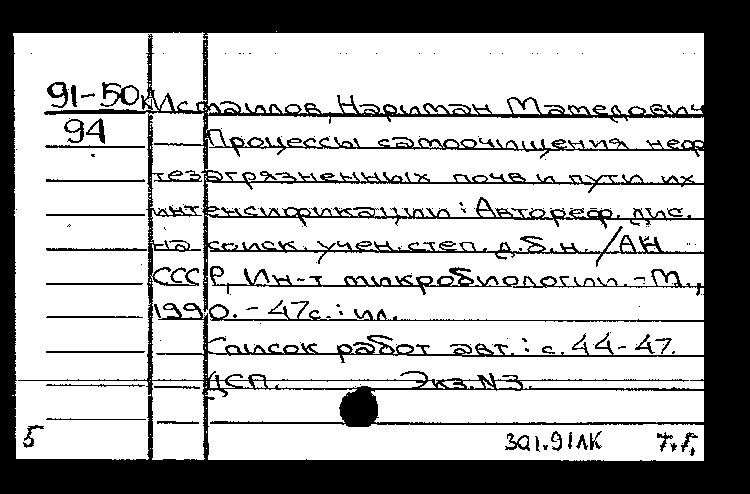 91-50к Исмаилов, Нариман Мамедович
94 Процессы самоочищения неф
тезагрязненных почв и пути их
интенсификации : Автореф. дис.
на соиск. учен. степ. д.б.н. /АН
СССР, Ин-т микробиологии. - М.,
1990. - 47с. : ил.
Список работ авт. : с. 44-47.
ДСП. Экз. N3.
5 3Q1.91ЛК Т.Г.